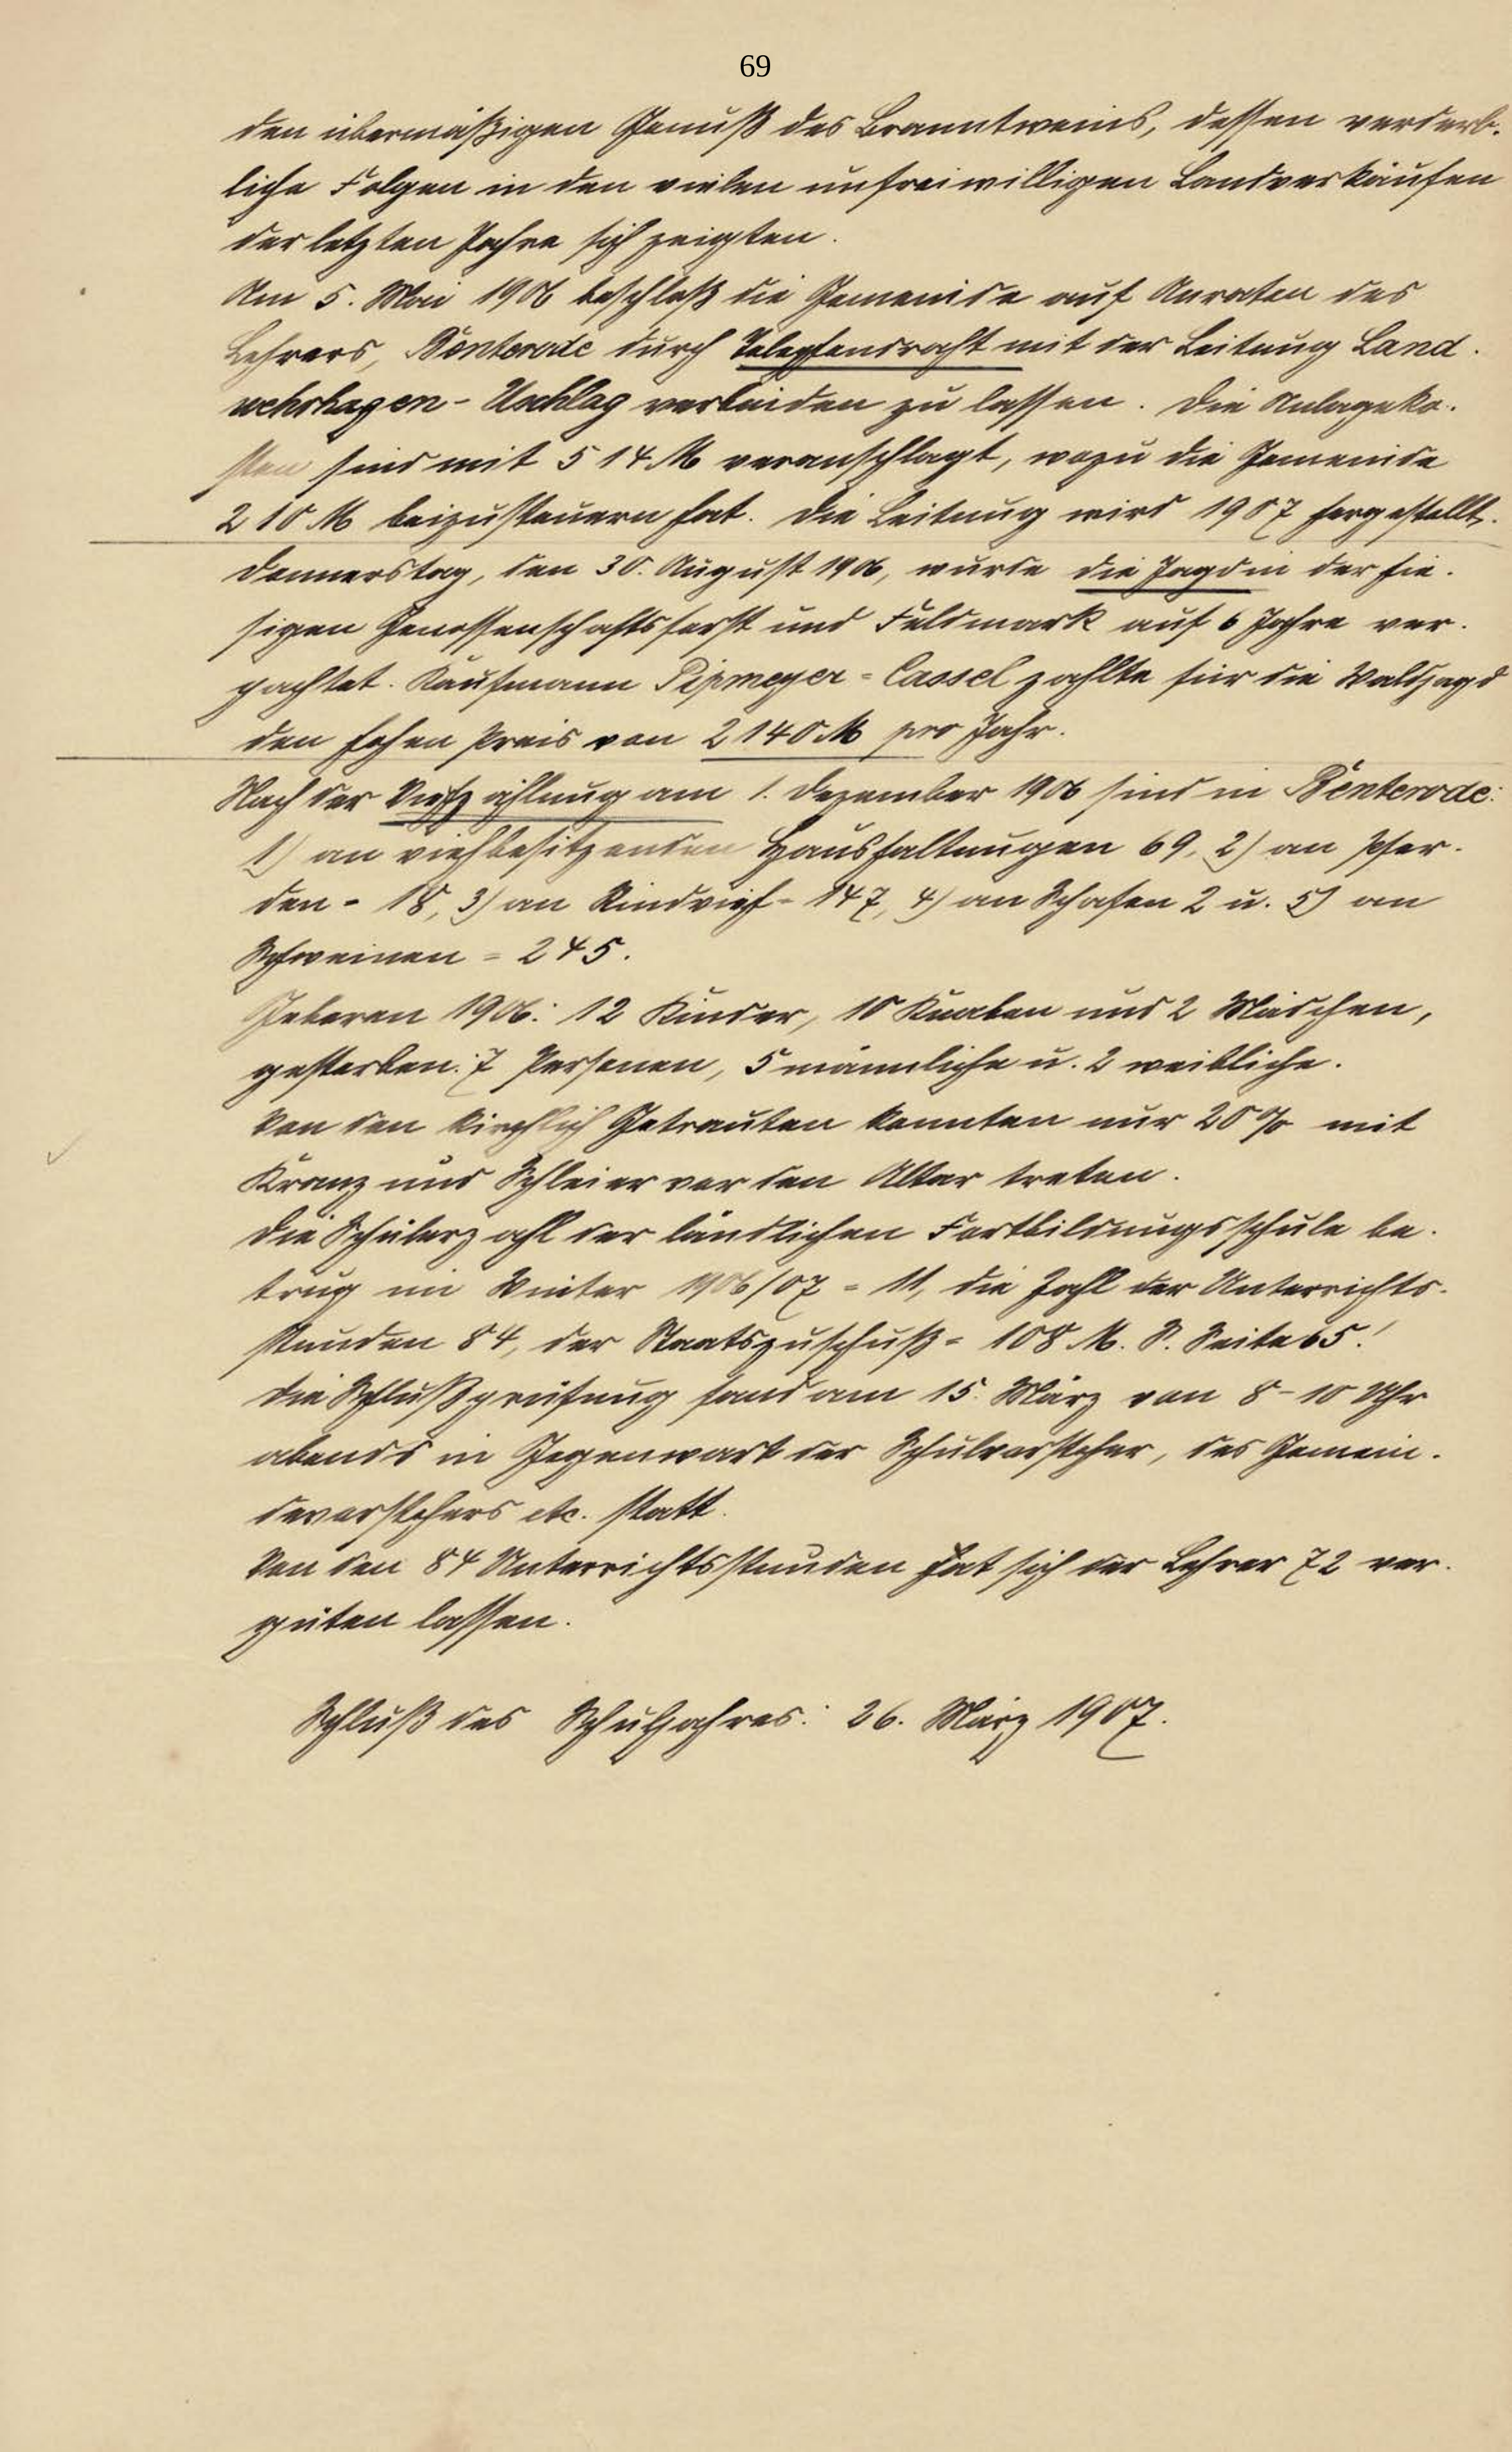 69
den übermäßigen Genuß des Branntweins, dessen verderb-
liche Folgen in den vielen unfreiwilligen Landverkäufen
der letzten Jahre sich zeigten.
Am 5. Mai 1906 beschloß die Gemeinde auf Anraten des
Lehrers, Benterode durch Telephondraht mit der Leitung Land-
wehrhagen-Uschlag verbinden zu lassen. Die Anlageko-
sten sind mit 514 M veranschlagt, wozu die Gemeinde
210 M beizusteuern hat. Die Leitung wird 1907 hergestellt.
Donnerstag, den 30. August 1906, wurde die Jagd in der hie-
sigen Genossenschaftsforst und Feldmark auf 6 Jahre ver-
pachtet. Kaufmann Pipmeyer-Cassel zahlte für die Waldjagd
den hohen Preis von 2140 M pro Jahr.
Nach der Viehzählung am 1. Dezember 1906 sind in Benterode:
1) an viehbesitzenden Haushaltungen 69, 2) an Pfer-
den = 18, 3) an Rindvieh = 147, 4) an Schafen 2 u. 5) an
Schweinen = 245.
Geboren 1906: 12 Kinder, 10 Knaben und 2 Mädchen,
gestorben: 7 Personen, 5 männliche u. 2 weibliche.
Von den kirchlich Getrauten konnten nur 20% mit
Kranz und Schleier vor den Altar treten.
Die Schülerzahl der ländlichen Fortbildungsschule be-
trug im Winter 1906/07 = 11, die Zahl der Unterrichts-
stunden 84, der Staatszuschuß = 108 M. S. Seite 65!
Die Schlußprüfung fand am 15. März von 8-10 Uhr
abends in Gegenwart der Schulvorsteher, des Gemein-
devorstehers etc. statt.
Von den 84 Unterrichtsstunden hat sich der Lehrer 72 ver-
güten lassen.
Schluß des Schuljahres: 26. März 1907.